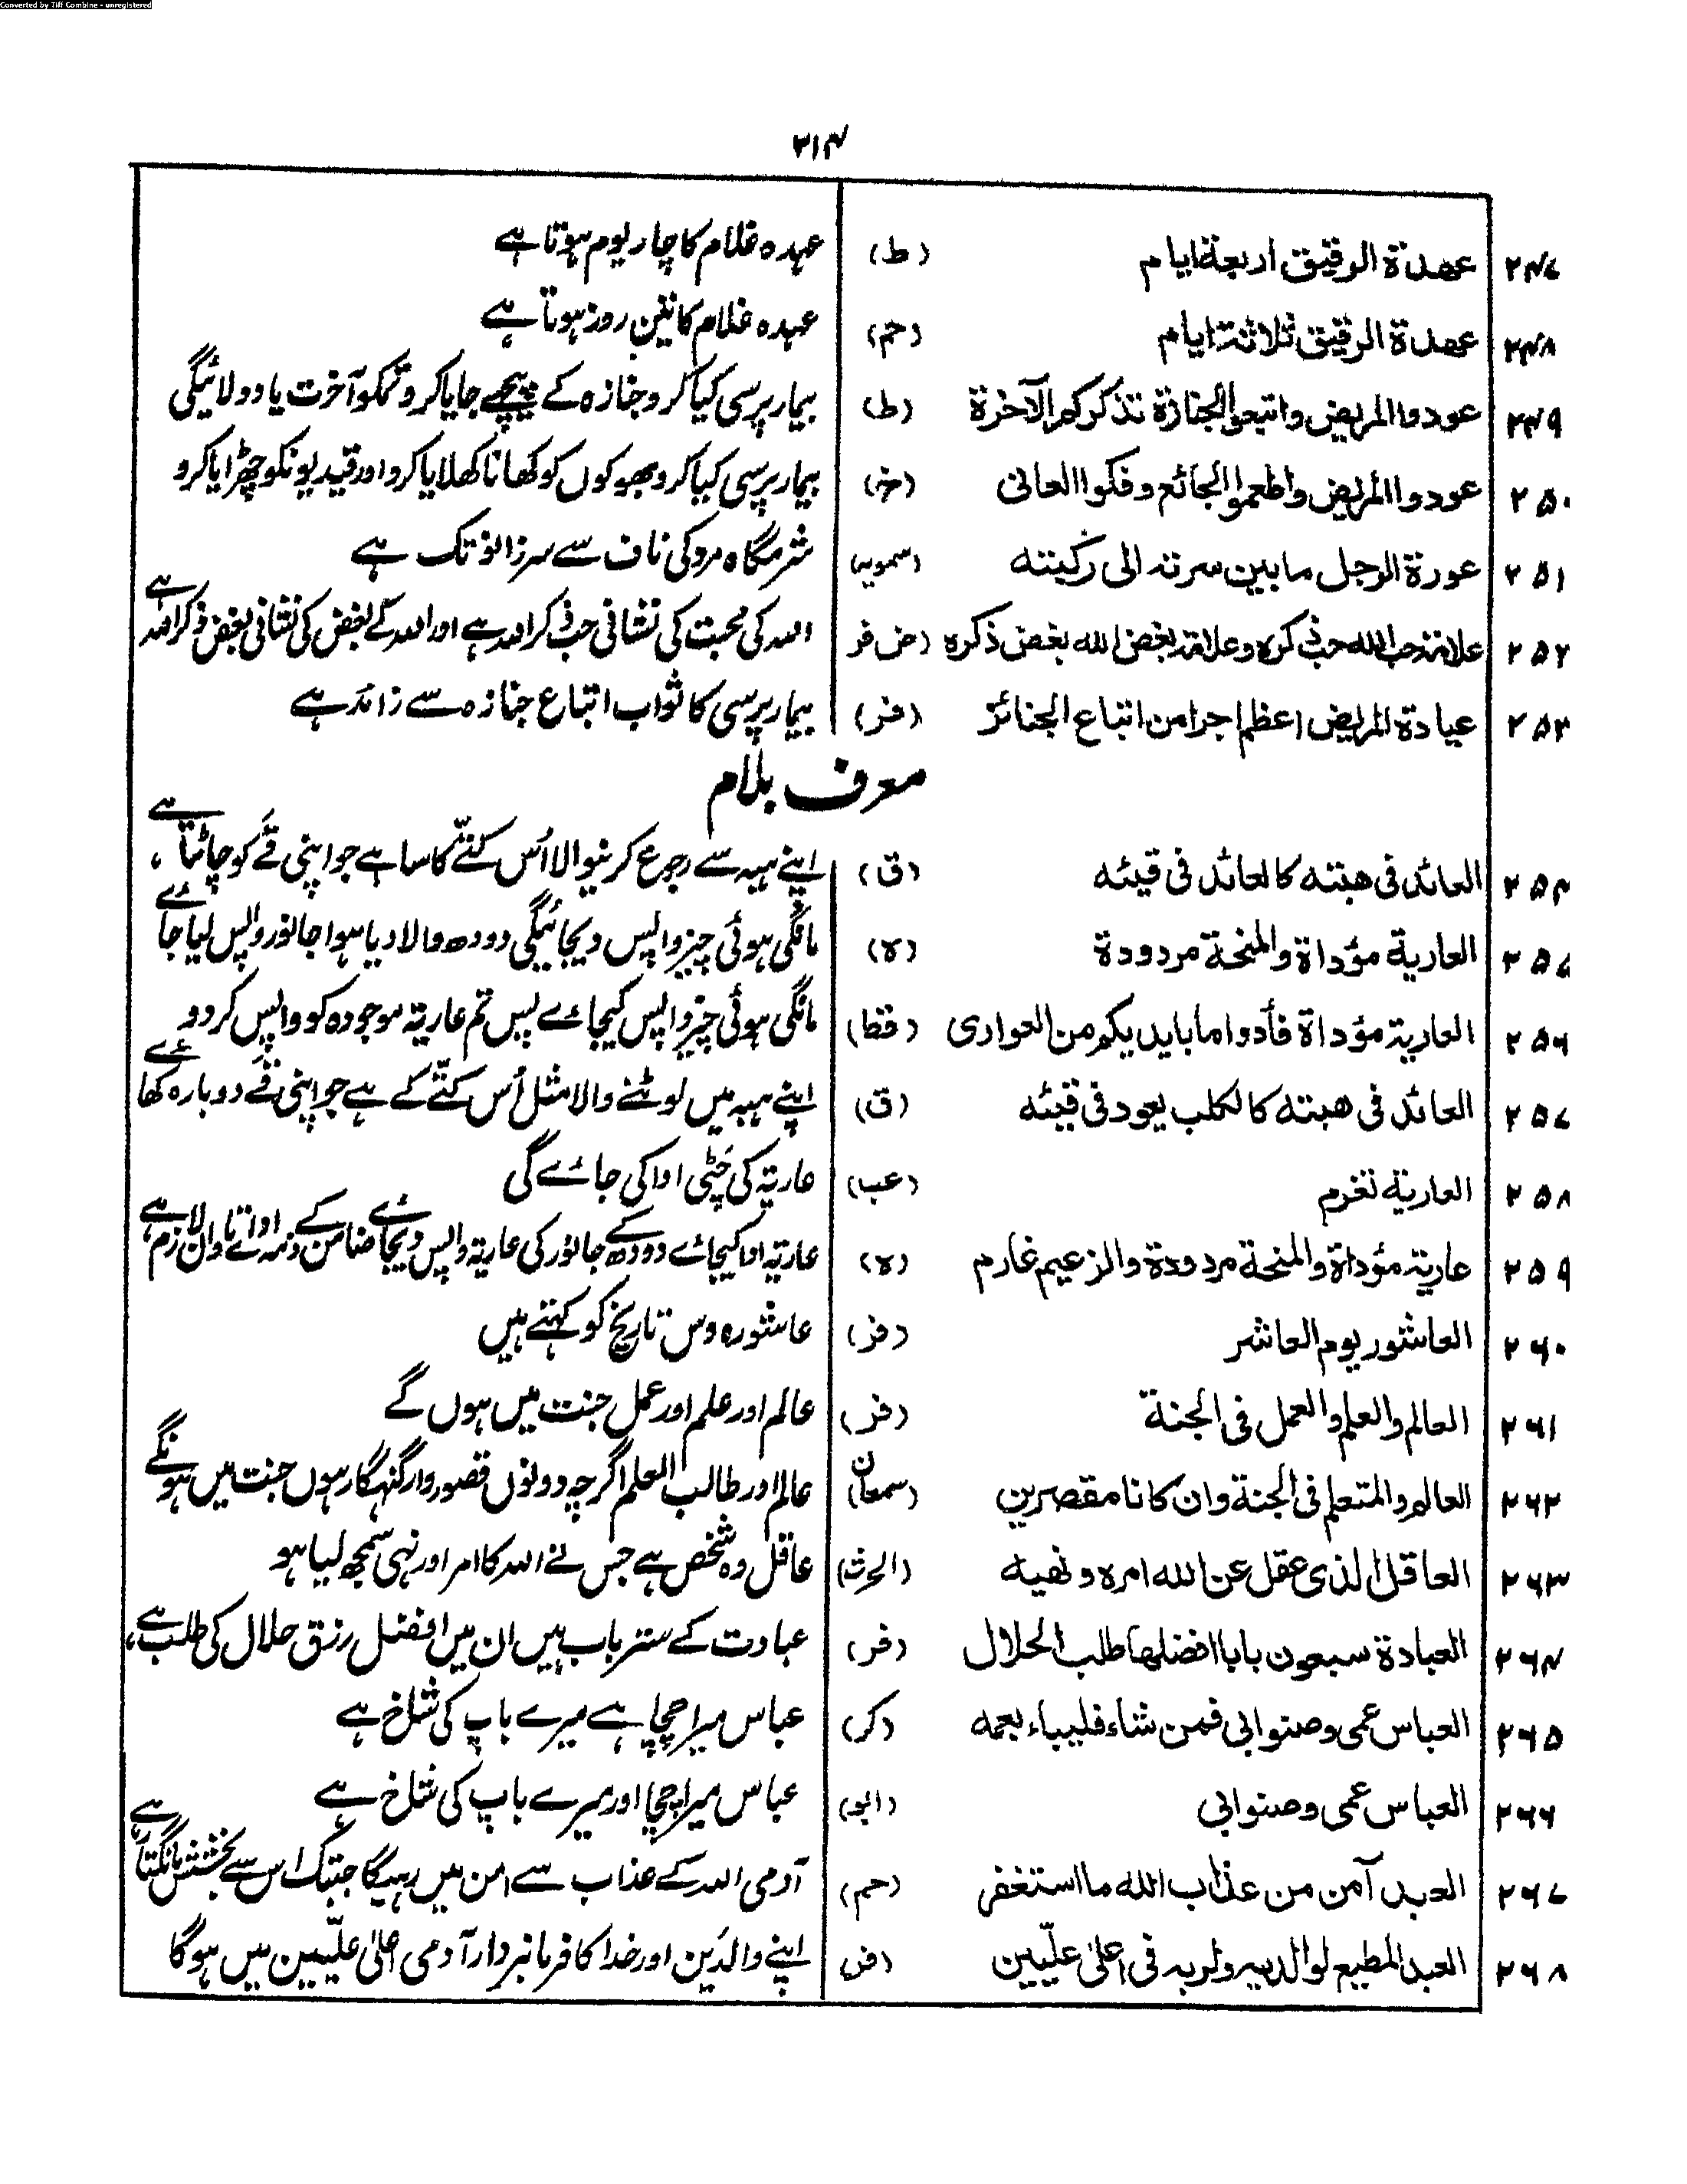 Converted by Tiff Combine - unregistered
۳۱۴
۲۴۷ عھدۃ الرقیق اربعۃ ایام (ط) عہدہ غلام کا چار یوم ہوتا ہے
۲۴۸ عھدۃ الرقیق ثلاثۃ ایام (حم) عہدہ غلام کا تین روز ہوتا ہے
۲۴۹ عودوا المریض واتبعوا الجنازۃ تذکرکم الآخرۃ (ط) بیمار پرسی کیا کرو جنازہ کے پیچھے جایا کرو تمکو آخرت یاد دلائیگی
۲۵۰ عودوا المریض واطعموا الجائع وفکوا العانی (خ) بیمار پرسی کیا کرو بھوکوں کو کھانا کھلایا کرو اور قیدیونکو چھڑایا کرو
۲۵۱ عورۃ الرجل مابین سرتہ الی رکبتہ (سمویہ) شرمگاہ مرد کی ناف سے سر زانو تک ہے
۲۵۲ علامۃ حب اللہ حب ذکرہ وعلامۃ بغض اللہ بغض ذکرہ (ض فر اللہ کی محبت کی نشانی حب ذکر اللہ ہے اور اللہ کے بغض کی نشانی بغض ذکر اللہ ہے
۲۵۳ عیادۃ المریض اعظم اجرا من اتباع الجنائز (فر) بیمار پرسی کا ثواب اتباع جنازہ سے زائد ہے
معرف بلام
۲۵۴ العائد فی ھبتہ کالعائد فی قیئہ (ق) اپنے ہبہ سے رجوع کرنیوالا اُس کتّے کا سا ہے جو اپنی قے کو چاٹتا ہے،
۲۵۷ العاریۃ مؤداۃ والمنحۃ مردودۃ (ہ) مانگی ہوئی چیز واپس دیجائیگی دودھ والا دیا ہوا جانور واپس لیا جائے
۲۵۶ العاریۃ مؤداۃ فأدوا ما بایدیکم من العواری (قط) مانگی ہوئی چیز واپس کیجائے پس تم عاریۃ موجودہ کو واپس کر دو
۲۵۷ العائد فی ھبتہ کالکلب یعود فی قیئہ (ق) اپنے ہبہ میں لوٹنے والا مثل اُس کتّے کے ہے جو اپنی قے دوبارہ کھائے
۲۵۸ العاریۃ تغرم (عب) عاریۃ کی چَٹی ادا کی جائے گی
۲۵۹ عاریۃ مؤداۃ والمنحۃ مردودۃ والزعیم غارم (ہ) عاریۃ ادا کیجائے دودھ کے جانور کی عاریۃ واپس دیجائے ضامن کے ذمہ ادائے تاوان لازم ہے
۲۶۰ العاشور یوم العاشر (فر) عاشورہ دس تاریخ کو کہتے ہیں
۲۶۱ العالم والعلم والعمل فی الجنۃ (فر) عالم اور علم اور عمل جنت میں ہوں گے
۲۶۲ العالم والمتعلم فی الجنۃ وان کانا مقصرین (سمعان) عالم اور طالب العلم اگرچہ دونوں قصور وار گنہگار ہوں جنت میں ہونگے
۲۶۳ العاقل الذی عقل عن اللہ امرہ ونھیہ (الحرث) عاقل وہ شخص ہے جس نے اللہ کا امر اور نہی سمجھ لیا ہو
۲۶۴ العبادۃ سبعون بابا افضلھا طلب الحلال (فر) عبادت کے ستر باب ہیں ان میں افضل رزق حلال کی طلب ہے،
۲۶۵ العباس عمی وصنو ابی فمن شاء فلیباء بعمہ (کر) عباس میرا چچا ہے میرے باپ کی شاخ ہے
۲۶۶ العباس عمی وصنو ابی عباس میرا چچا اور میرے باپ کی شاخ ہے
۲۶۷ العبد آمن من عذاب اللہ ما استغفر (حم) آدمی اللہ کے عذاب سے امن میں رہیگا جبتک اس سے بخشش مانگتا ہے
۲۶۸ العبد المطیع لوالدیہ ولربہ فی اعلیٰ علّیین (فر) اپنے والدَین اور خدا کا فرمانبردار آدمی اعلیٰ علّیین میں ہوگا